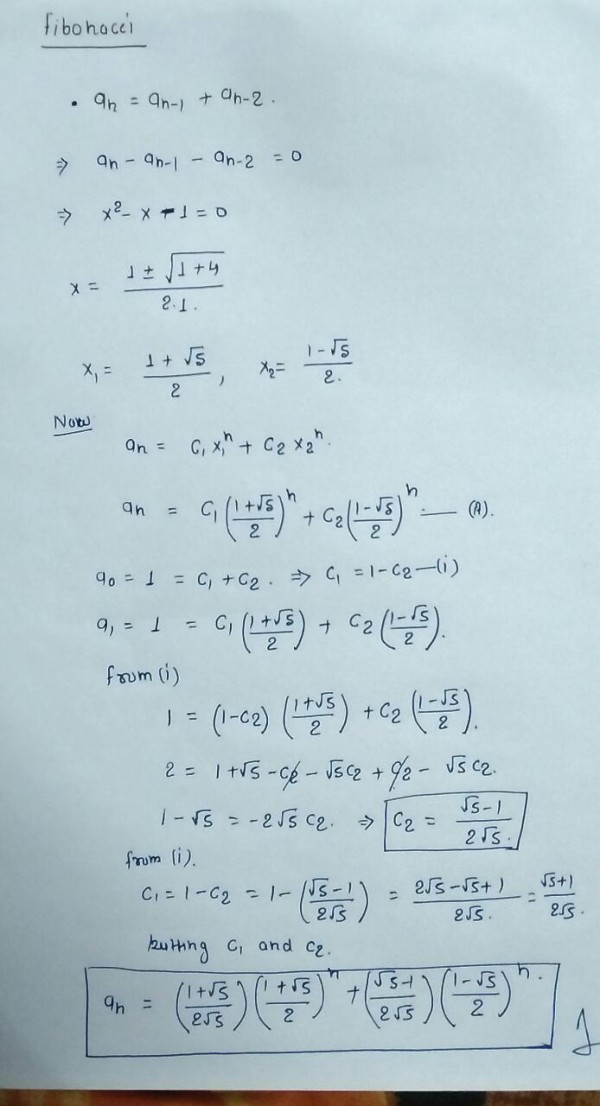 fibonacci
• aₙ = aₙ₋₁ + aₙ₋₂.
⇒ aₙ - aₙ₋₁ - aₙ₋₂ = 0
⇒ x² - x - 1 = 0
x = (1 ± √(1+4))/(2·1.)
x₁ = (1 + √5)/2, x₂ = (1-√5)/2.
Now
aₙ = C₁x₁ⁿ + C₂x₂ⁿ.
aₙ = C₁((1+√5)/2)ⁿ + C₂((1-√5)/2)ⁿ — (A).
a₀ = 1 = C₁ + C₂. ⇒ C₁ = 1-C₂ —(i)
a₁ = 1 = C₁((1+√5)/2) + C₂((1-√5)/2).
from (i)
1 = (1-C₂)((1+√5)/2) + C₂((1-√5)/2).
2 = 1+√5 - C₂ - √5C₂ + C₂ - √5C₂.
1-√5 = -2√5C₂. ⇒ C₂ = (√5-1)/(2√5.)
from (i).
C₁ = 1-C₂ = 1-((√5-1)/(2√5)) = (2√5-√5+1)/(2√5.) = (√5+1)/(2√5.)
putting C₁ and C₂.
aₙ = ((1+√5)/(2√5))((1+√5)/2)ⁿ + ((√5-1)/(2√5))((1-√5)/2)ⁿ.